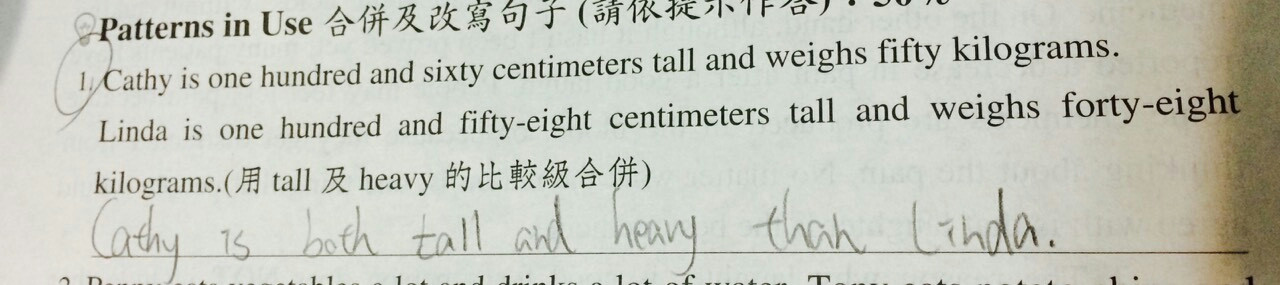 Patterns in Use 合併及改寫句子 (請依提示作答) : 30%
1. Cathy is one hundred and sixty centimeters tall and weighs fifty kilograms.
Linda is one hundred and fifty-eight centimeters tall and weighs forty-eight
kilograms.(用 tall 及 heavy 的比較級合併)
Cathy is both tall and heavy than Linda.